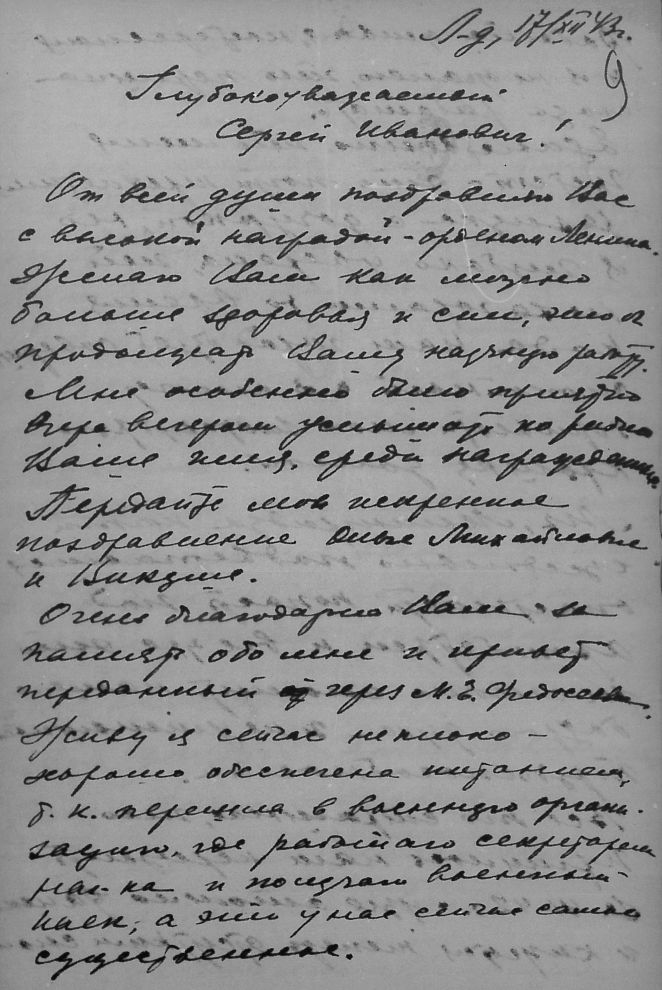 Л-д, 17/XII 43г.
9
Глубокоуважаемый
Сергей Иванович!
От всей души поздравляю Вас
с высокой наградой - орденом Ленина.
Желаю Вам как можно
больше здоровья и сил, чтоб
продолжать Вашу научную работу.
Мне особенно было приятно
вчера вечером услышать по радио
Ваше имя, среди награжденных.
Передайте мои искренние
поздравление Ольге Михайловне
и
Очень благодарю Вам за
память обо мне и привет
переданный через М. Е.
Живу я сейчас неплохо -
хорошо обеспечена питанием,
т. к. перешла в военную органи-
зацию, где работаю секретарем
нач-ка и получаю военный
паек, а это у нас сейчас самое
существенное.